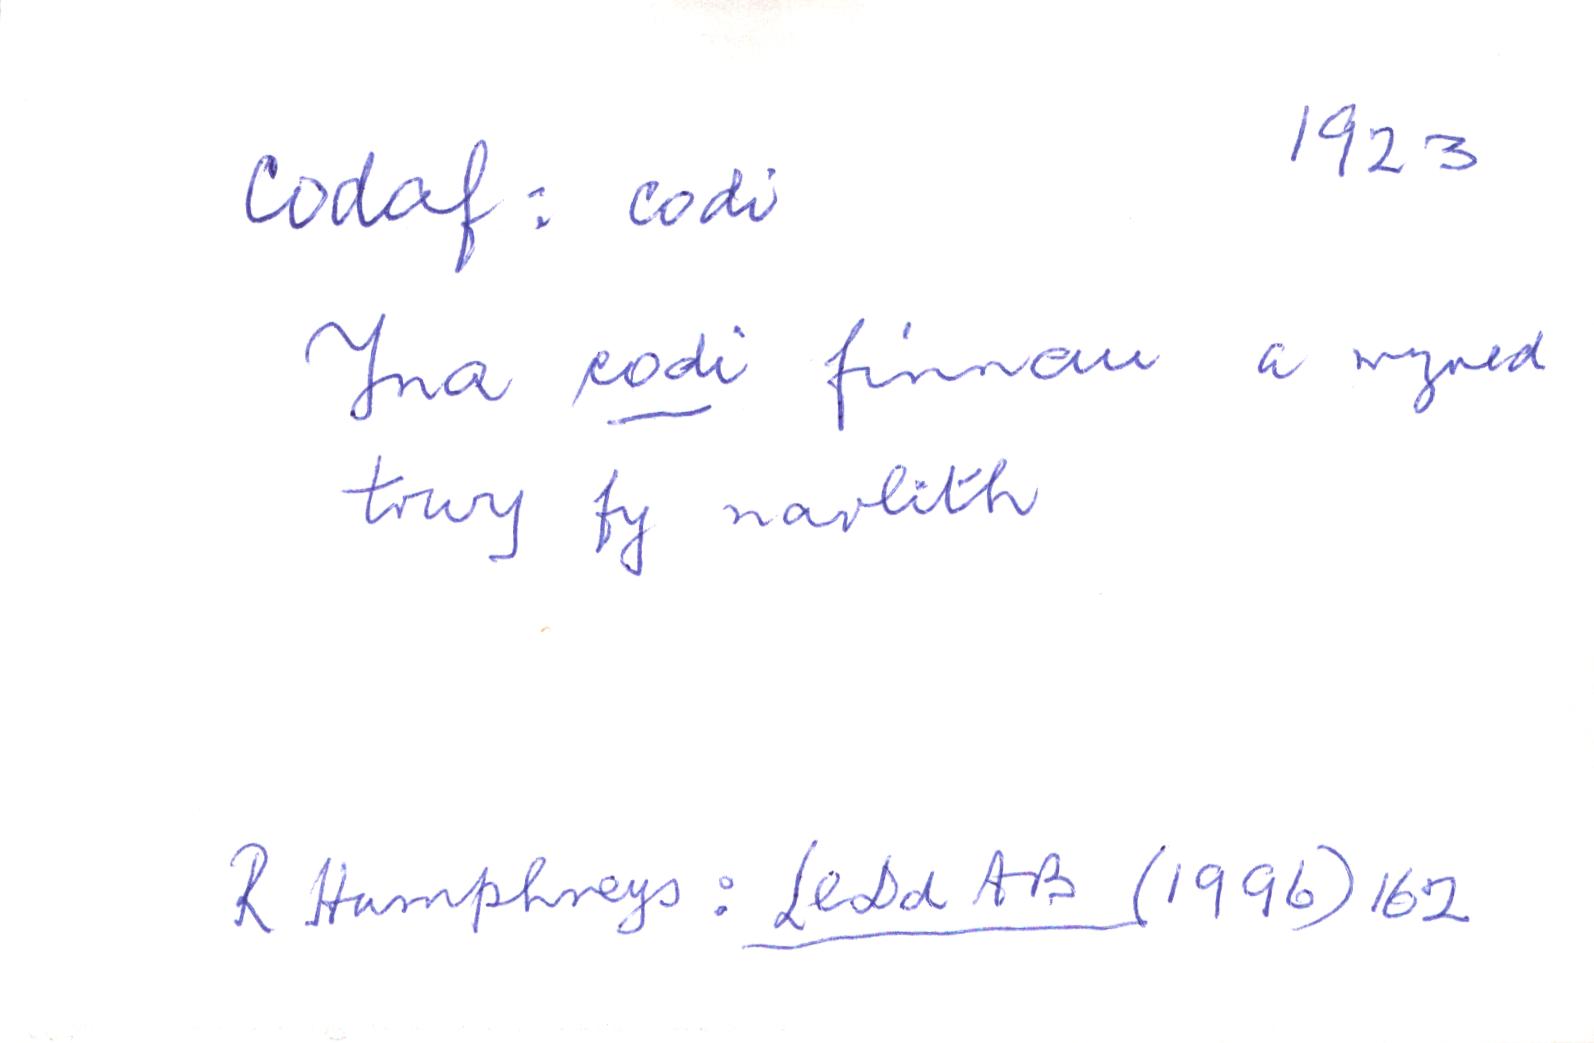 1923
Codaf: codi
Yna codi finnau a myned
trwy fy narlith
R Humphreys: LlDd AB (1996) 162